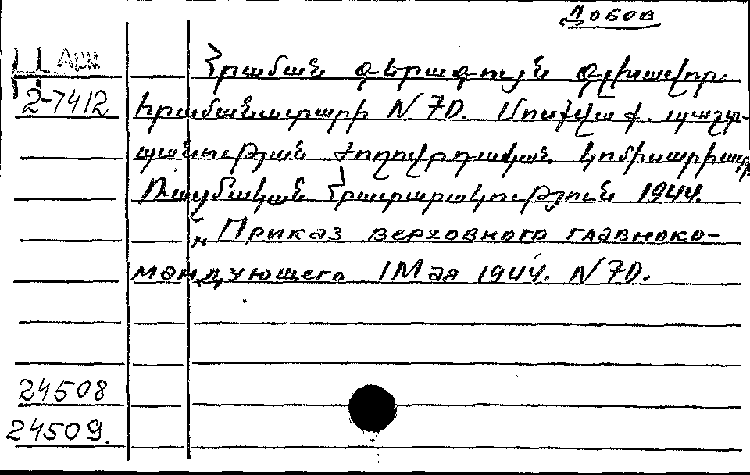 Любов
Ц Арм
2-7412
Հրաման գերագույն գլխավոր
հրամանատարի N 70. Մոսկվա պաշտ-
պանության ժողովրդական կոմիսարիատ
Ռազմական Հրատարակություն 1944.
Приказ верховного главноко-
мандующего 1 Мая 1944. N 70.
24508
24509.